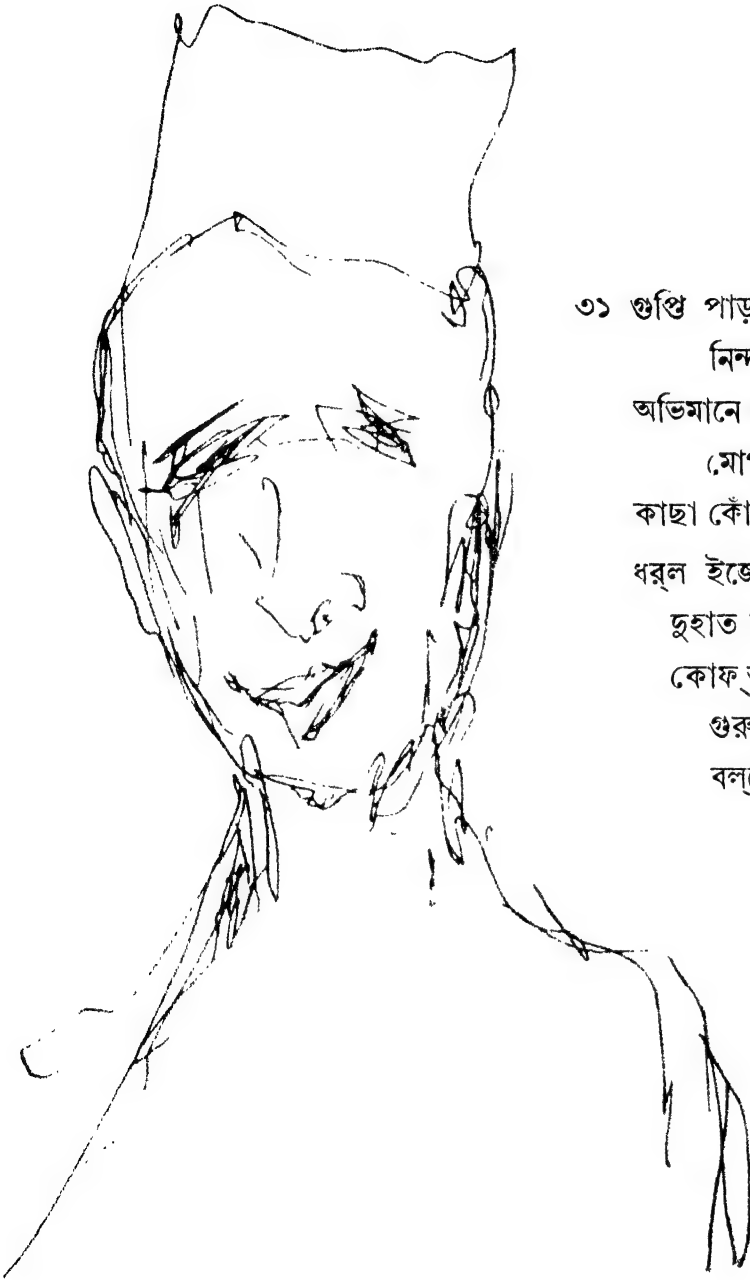 ৩১ গুপ্তি পাড়
নিন্দ
অভিমানে
মোগ
কাছা কোঁ
ধর্‌ল ইজে
দুহাত
কোফ্‌
গুরু
বল্‌